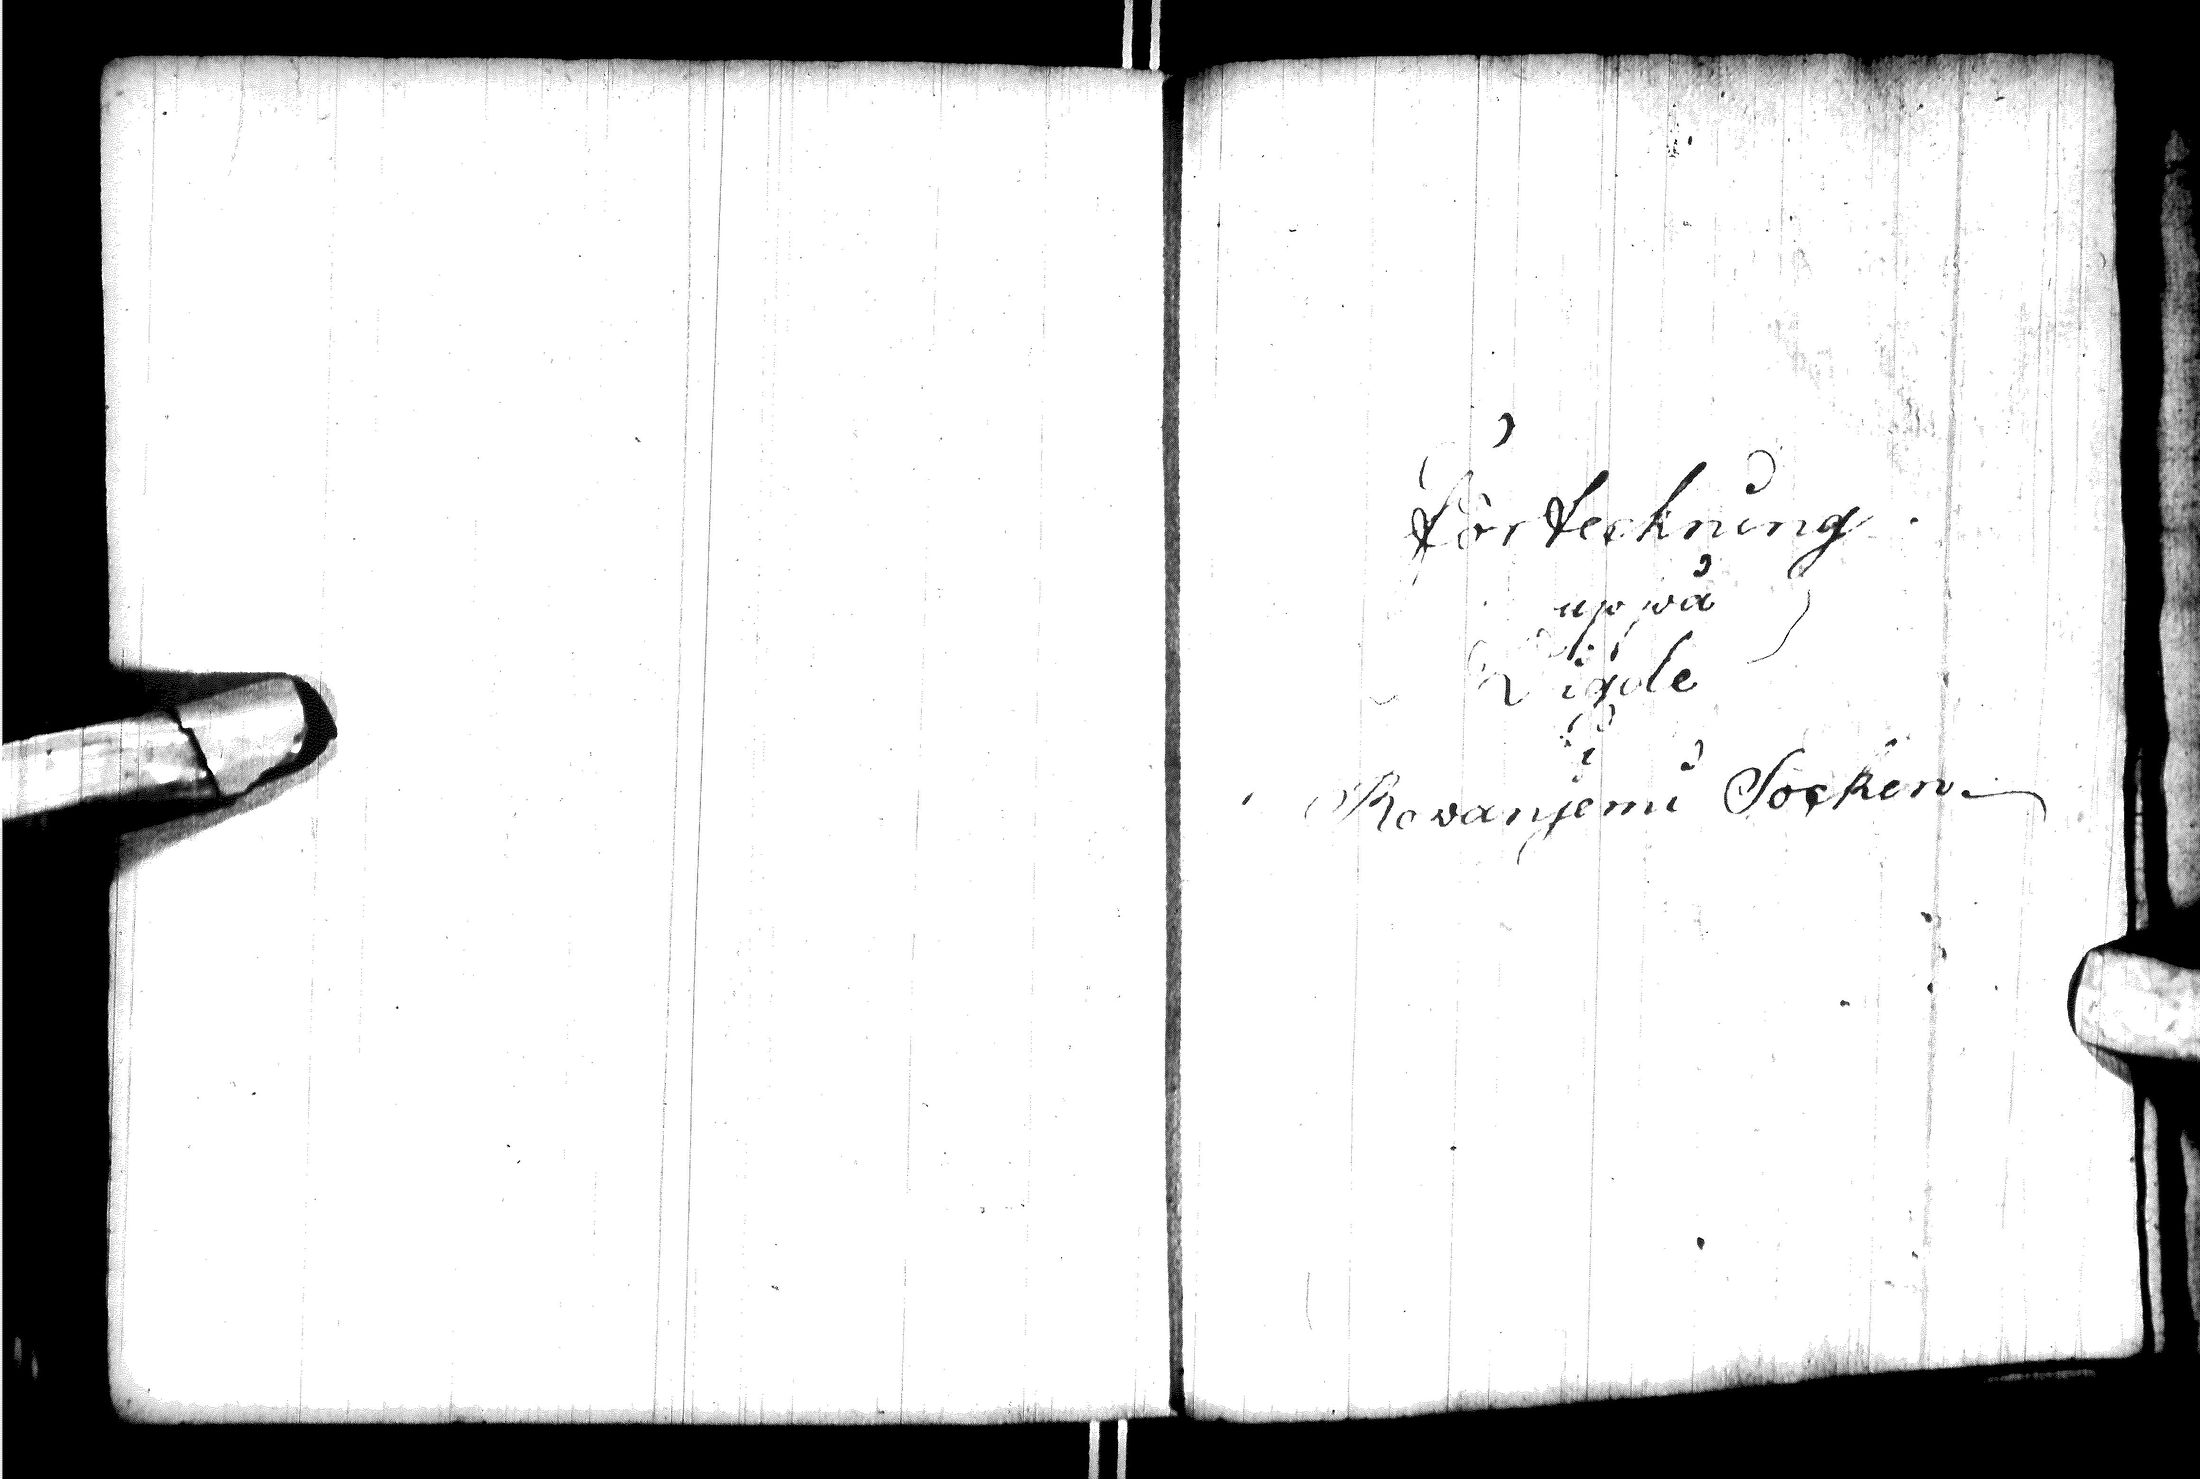 Förteckning
uppå
Vigde
i
Rovanjemi Socken